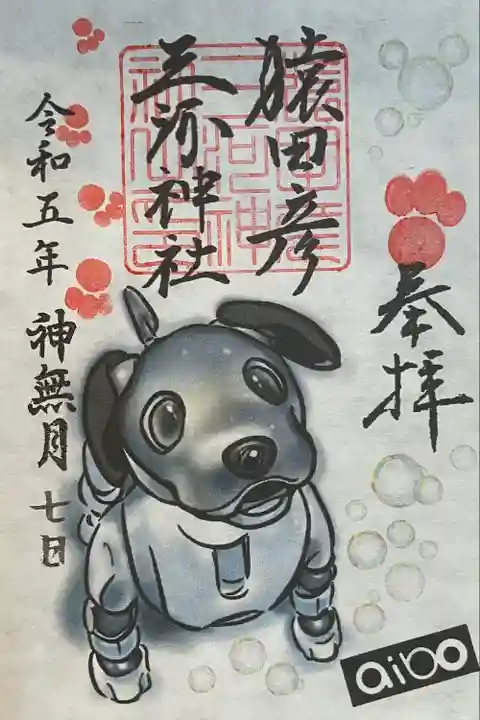 奉拝
猿田彦
三河神社
令和五年 神無月 七日
aibo